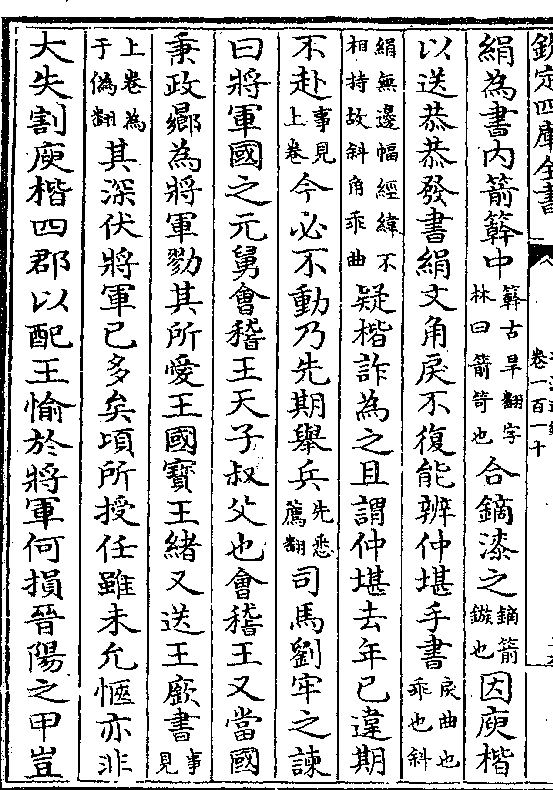 欽定四庫全書 卷一百一十
絹為書内箭簳中簳古旱翻字林曰箭笴也合鏑漆之鏑箭鏃也因庾楷
以送恭恭發書絹文角戾不復能辨仲堪手書戾曲也乖也斜
絹無邊幅經緯不相持故斜角乖曲疑楷詐為之且謂仲堪去年已違期
不赴事見上卷今必不動乃先期舉兵先悉薦翻司馬劉牢之諫
曰將軍國之元舅會稽王天子叔父也會稽王又當國
秉政曏為將軍戮其所愛王國寶王緒又送王廞書事見
上卷為于偽翻其深伏將軍已多矣頃所授任雖未允愜亦非
大失割庾楷四郡以配王愉於將軍何損晉陽之甲豈